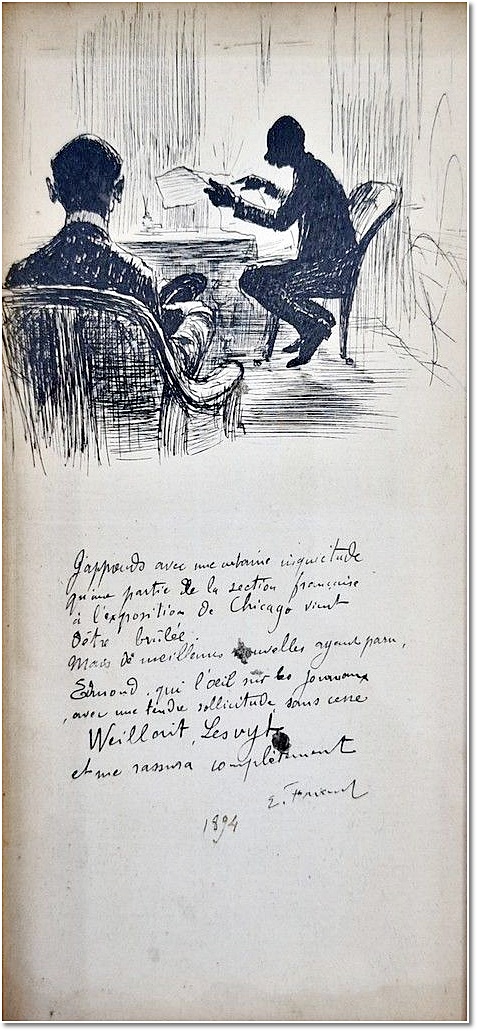 J'apprends avec une certaine inquiétude
qu'une partie de la section française
à l'exposition de Chicago vient
d'être brûlée.
Mais de meilleures nouvelles ayant paru,
Edmond, qui l'œil sur les journaux
, avec une tendre sollicitude sans cesse
Weillorit, Les vyt
et me rassura complètement
E. Friant
1894